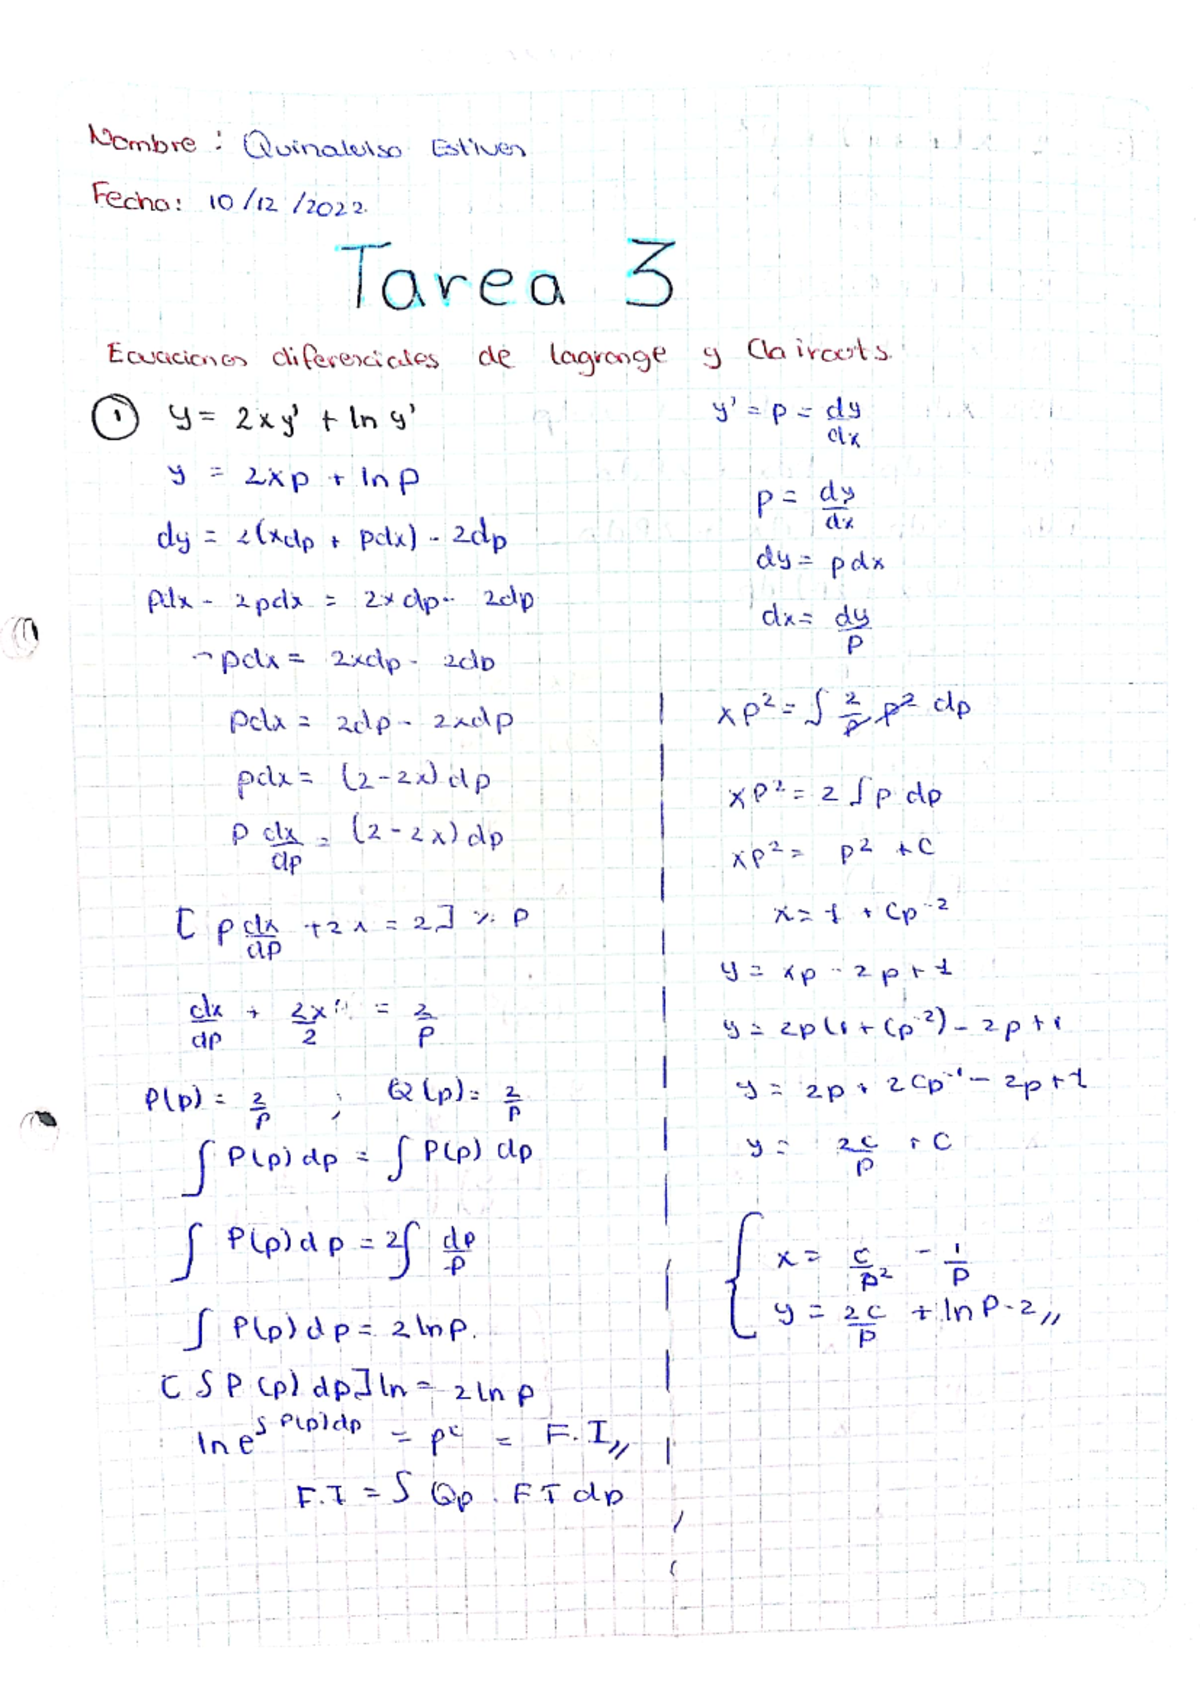 Nombre : Quinaluiso Estiven
Fecha: 10/12/2022.
Tarea 3
Ecuaciones diferenciales de lagrange y Clairauts.
① y = 2xy' + ln y'
y = 2xp + ln p
dy = 2(xdp + pdx) - 2dp
pdx - 2pdx = 2xdp - 2dp
-pdx = 2xdp - 2dp
pdx = 2dp - 2xdp
pdx = (2-2x)dp
p dx/dp = (2-2x)dp
[p dx/dp + 2x = 2] % p
dx/dp + 2x/2 = 2/p
P(p) = 2/p ; Q(p) = 2/p
∫ P(p) dp = ∫ P(p) dp
∫ P(p) dp = 2∫ dp/p
∫ P(p) dp = 2 ln p.
[∫ P(p) dp] ln = 2 ln p
ln e^∫P(p)dp = p^c = F.I //
F.I = ∫ Qp . FI dp
y' = p = dy/dx
p = dy/dx
dy = pdx
dx = dy/p
xp² = ∫ 2/p p² dp
xp² = 2 ∫ p dp
xp² = p² + C
x = 1 + Cp⁻²
y = xp - 2p + 1
y = 2p(1 + Cp⁻²) - 2p + 1
y = 2p + 2Cp⁻¹ - 2p + 1
y = 2C/p + C
{ x = C/p² - 1/p
y = 2C/p + ln P - 2 //